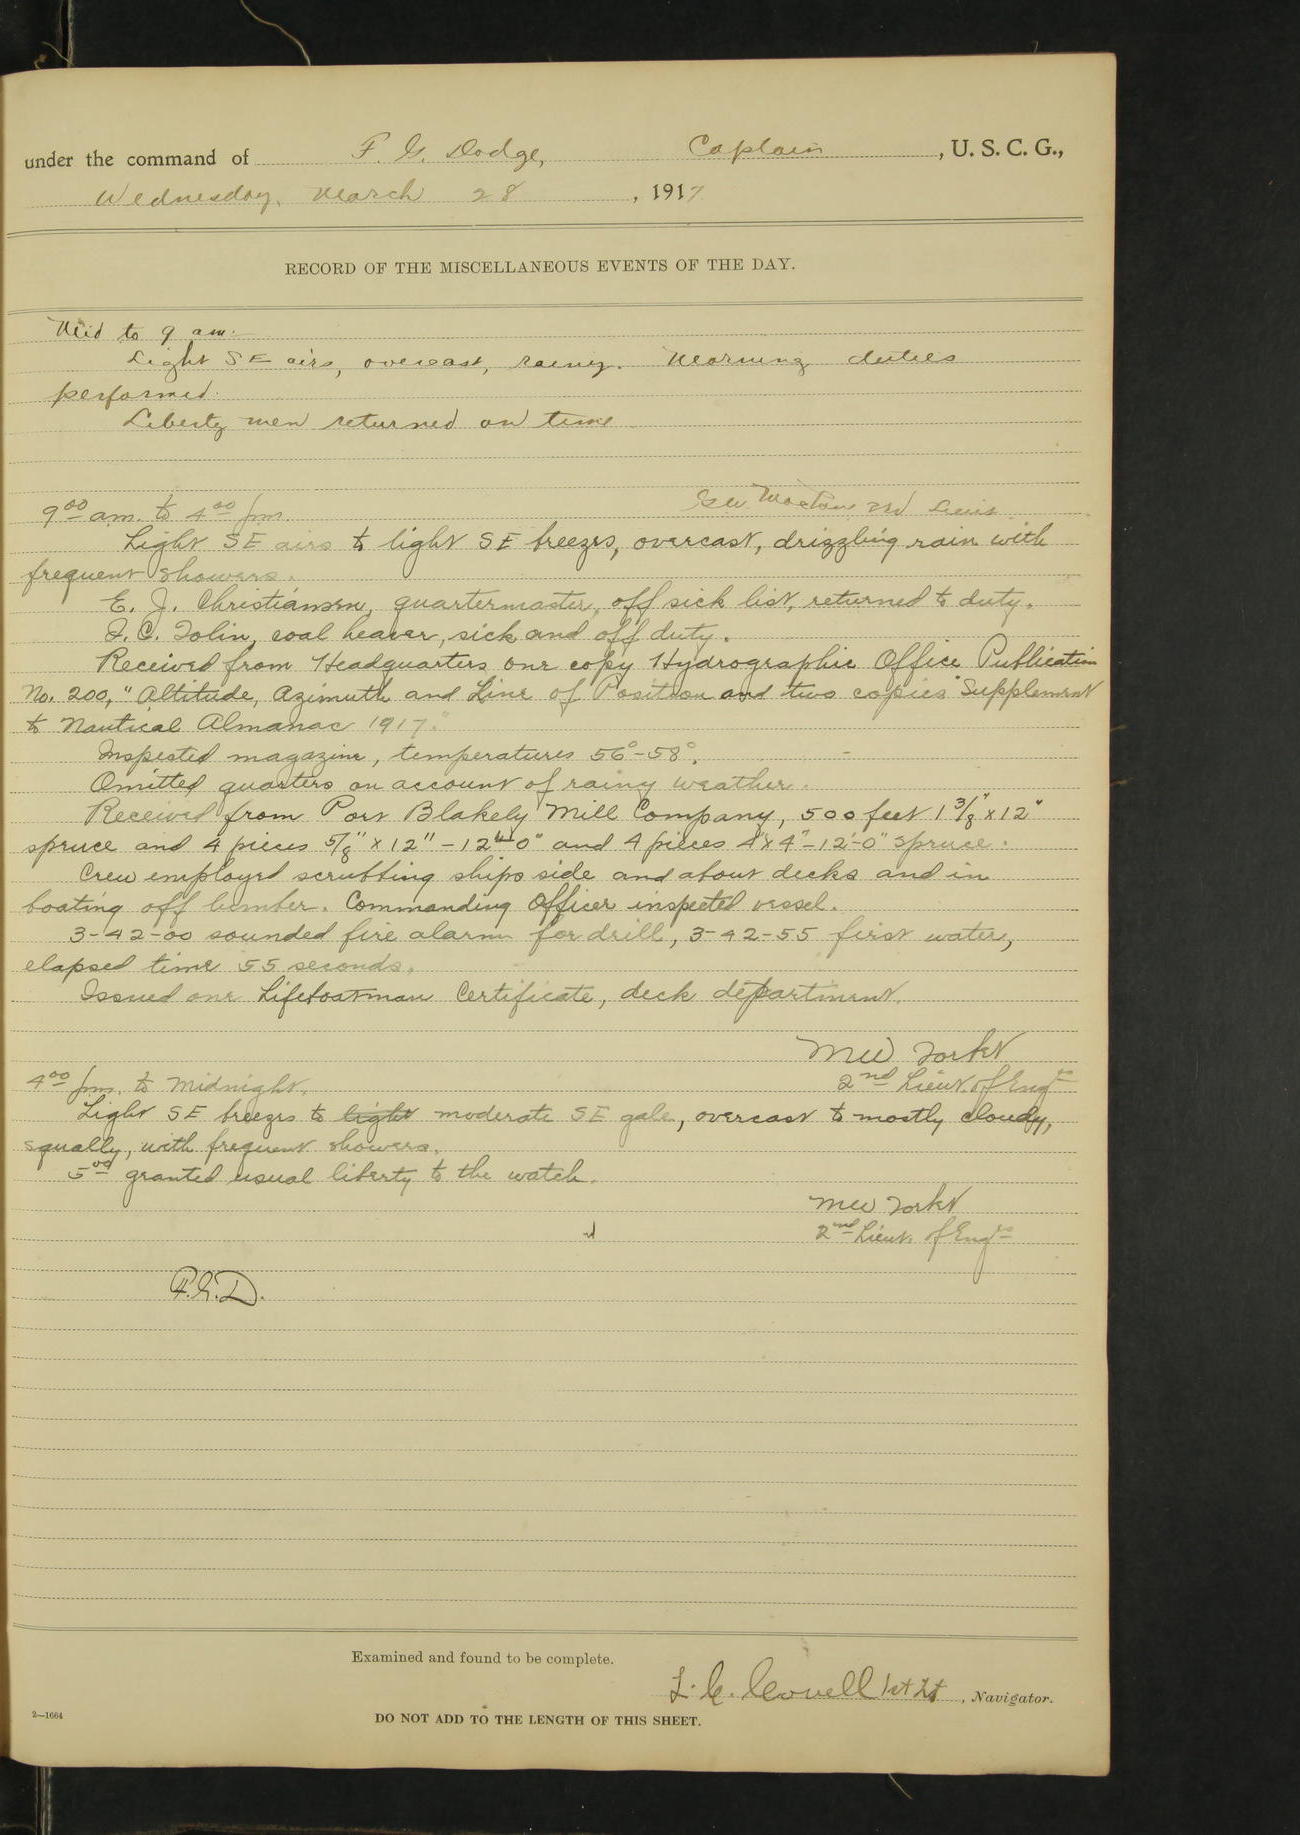 under the command of F. G. Dodge, Captain, U. S. C. G.,
Wednesday, March 28, 1917
RECORD OF THE MISCELLANEOUS EVENTS OF THE DAY.
Mid to 9 am.
Light SE airs, overcast, rainy. Morning duties
performed.
Liberty men returned on time
3rd Lieut
9 00 a.m. to 4 00 p.m.
Light SE airs to light SE breezes, overcast, drizzling rain with
frequent showers.
E. J. Christiansen, quartermaster, off sick list, returned to duty.
J. C. Tolin, coal heaver, sick and off duty.
Received from Headquarters one copy Hydrographic Office Publication
No. 200, "Altitude, Azimuth and Line of Position and two copies "Supplement
to Nautical Almanac 1917."
Inspected magazine, temperatures 56°-58°.
Omitted quarters on account of rainy weather.
Received from Port Blakely Mill Company, 500 feet 1 3/8" x 12"
spruce and 4 pieces 5/8" x 12" - 12'-0" and 4 pieces 4"x4"-12'-0" spruce.
Crew employed scrubbing ships side and about decks and in
boating off lumber. Commanding Officer inspected vessel.
3-42-00 sounded fire alarm for drill, 3-42-55 first water,
elapsed time 55 seconds.
Issued one Lifeboatman Certificate, deck department.
MW Torbet
2nd Lieut. of Engrs
4 00 p.m. to Midnight.
Light SE breezes to light moderate SE gale, overcast to mostly cloudy,
squally, with frequent showers.
5 00 granted usual liberty to the watch.
MW Torbet
2nd Lieut. of Engrs
F.G.D.
Examined and found to be complete.
L. C. Covell 1st Lt, Navigator.
2—1664
DO NOT ADD TO THE LENGTH OF THIS SHEET.